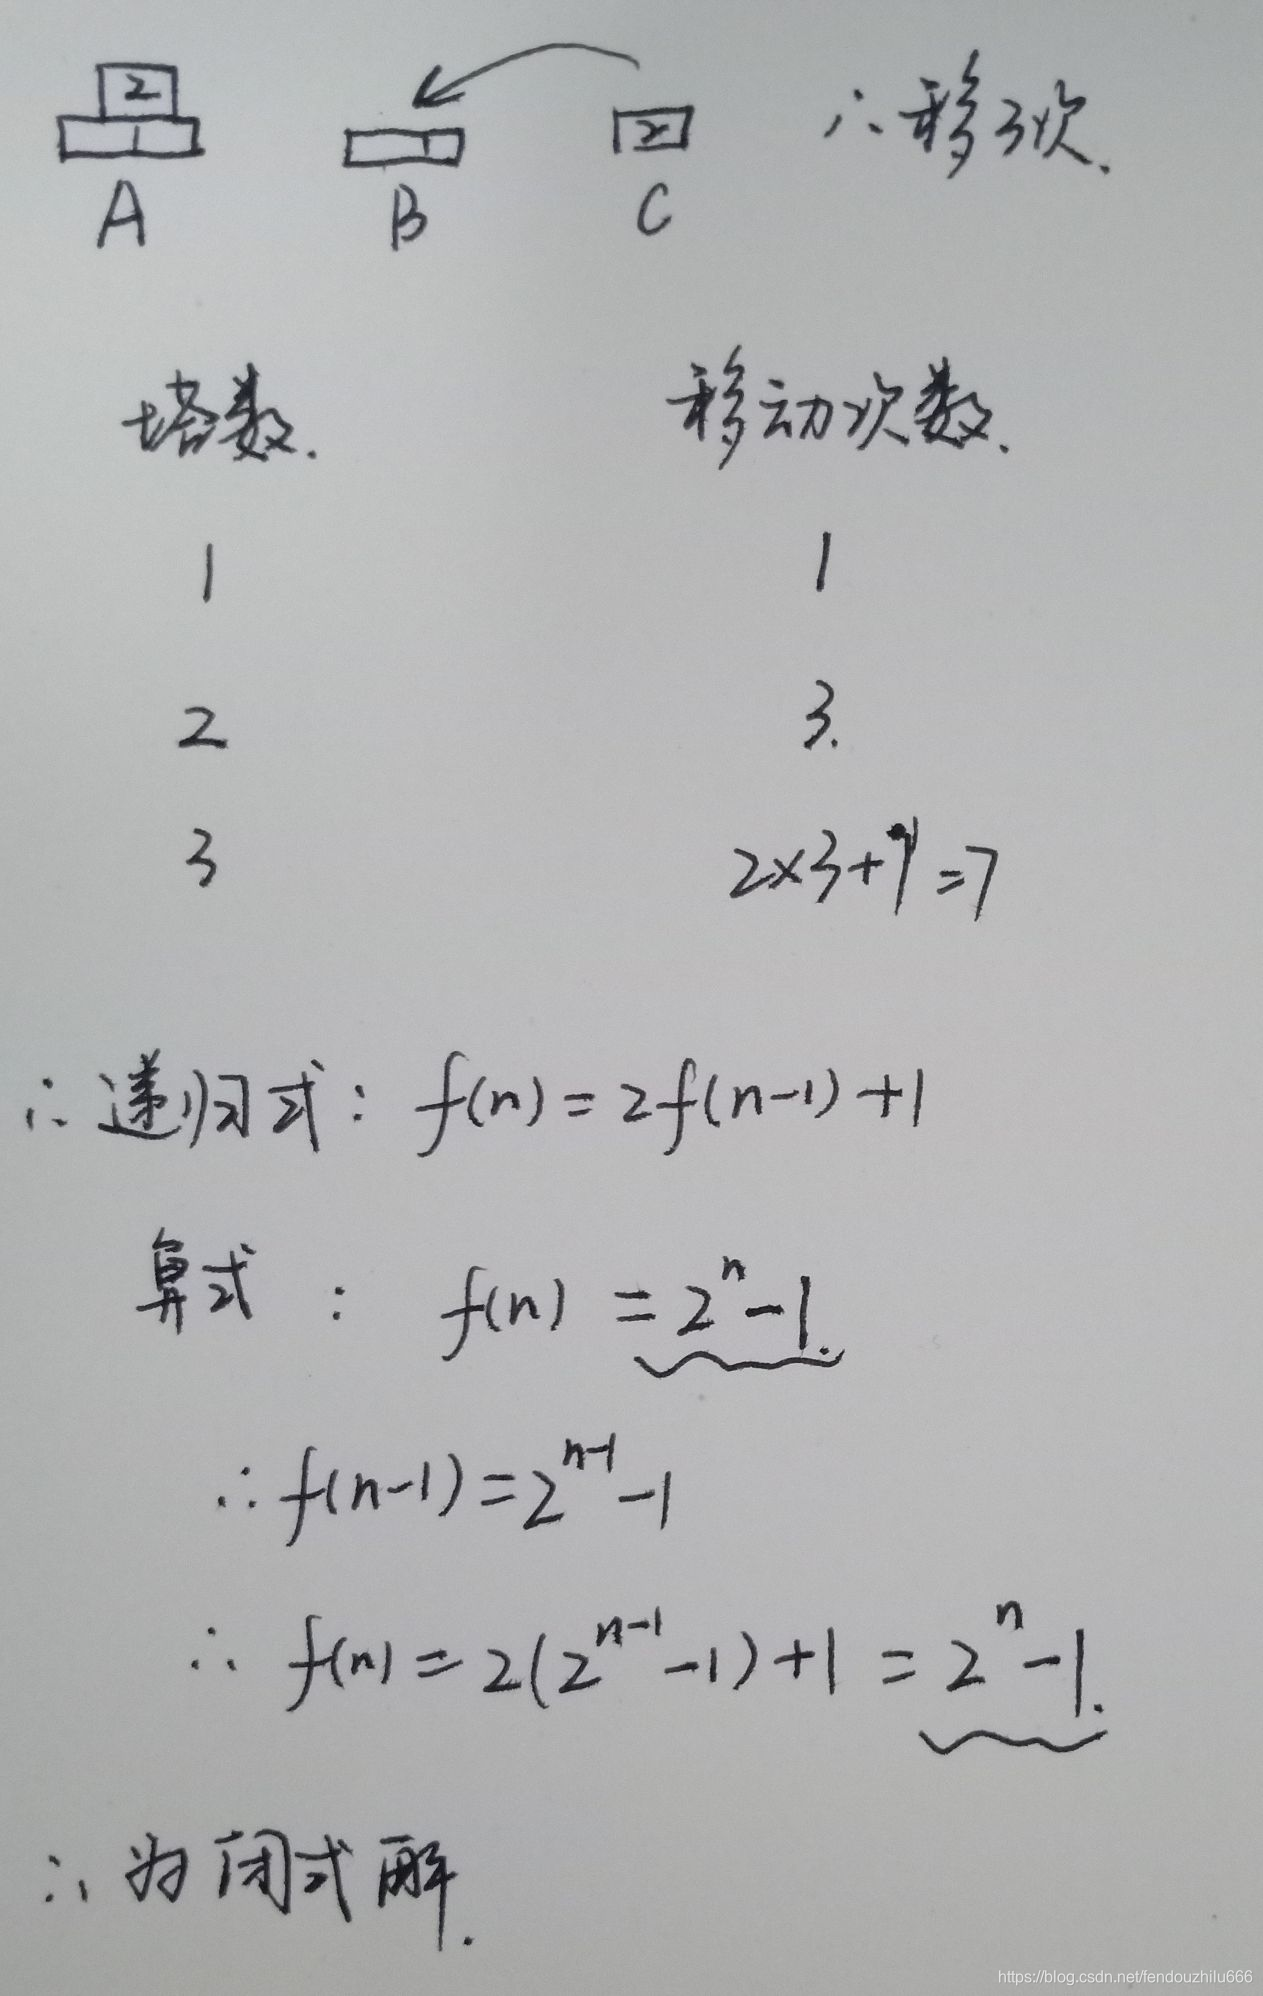 2 2 ∴移3次.
1 1
A B C
塔数. 移动次数.
1 1
2 3.
3 2×3+1=7
∴递归式: f(n)=2f(n-1)+1
算式: f(n)=2ⁿ-1.
∴f(n-1)=2ⁿ⁻¹-1
∴f(n)=2(2ⁿ⁻¹-1)+1=2ⁿ-1.
∴为闭式解.
https://blog.csdn.net/fendouzhilu666